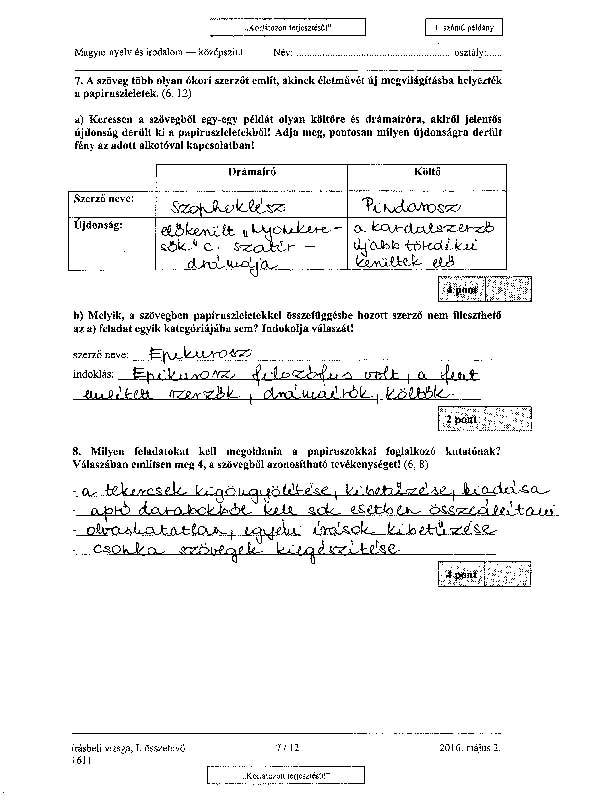 „Korlátozott terjesztésű!”
1. számú példány
Magyar nyelv és irodalom — középszint Név: ........................................ osztály:......
7. A szöveg több olyan ókori szerzőt említ, akinek életművét új megvilágításba helyezték
a papiruszleletek. (6, 12)
a) Keressen a szövegből egy-egy példát olyan költőre és drámaíróra, akiről jelentős
újdonság derült ki a papiruszleletekből! Adja meg, pontosan milyen újdonságra derült
fény az adott alkotóval kapcsolatban!
Drámaíró Költő
Szerző neve: Szophoklész Pindarosz
Újdonság: előkerült „Nyomkere- a kardalszerző
sők" c. szatír - újabb töredékei
drámája kerültek elő
4 pont
b) Melyik, a szövegben papiruszleletekkel összefüggésbe hozott szerző nem illeszthető
az a) feladat egyik kategóriájába sem? Indokolja válaszát!
szerző neve: Epikurosz
indoklás: Epikurosz filozófus volt, a fent
említett szerzők, drámaírók, költők.
2 pont
8. Milyen feladatokat kell megoldania a papiruszokkal foglalkozó kutatónak?
Válaszában említsen meg 4, a szövegből azonosítható tevékenységet! (6, 8)
- a tekercsek kigöngyölítése, kibetűzése, kiadása
- apró darabokból kell sok esetben összeállítani
- olvashatatlan, egyedi írások kibetűzése
- csonka szövegek kiegészítése
4 pont
írásbeli vizsga, I. összetevő 7 / 12 2016. május 2.
1611
„Korlátozott terjesztésű!”